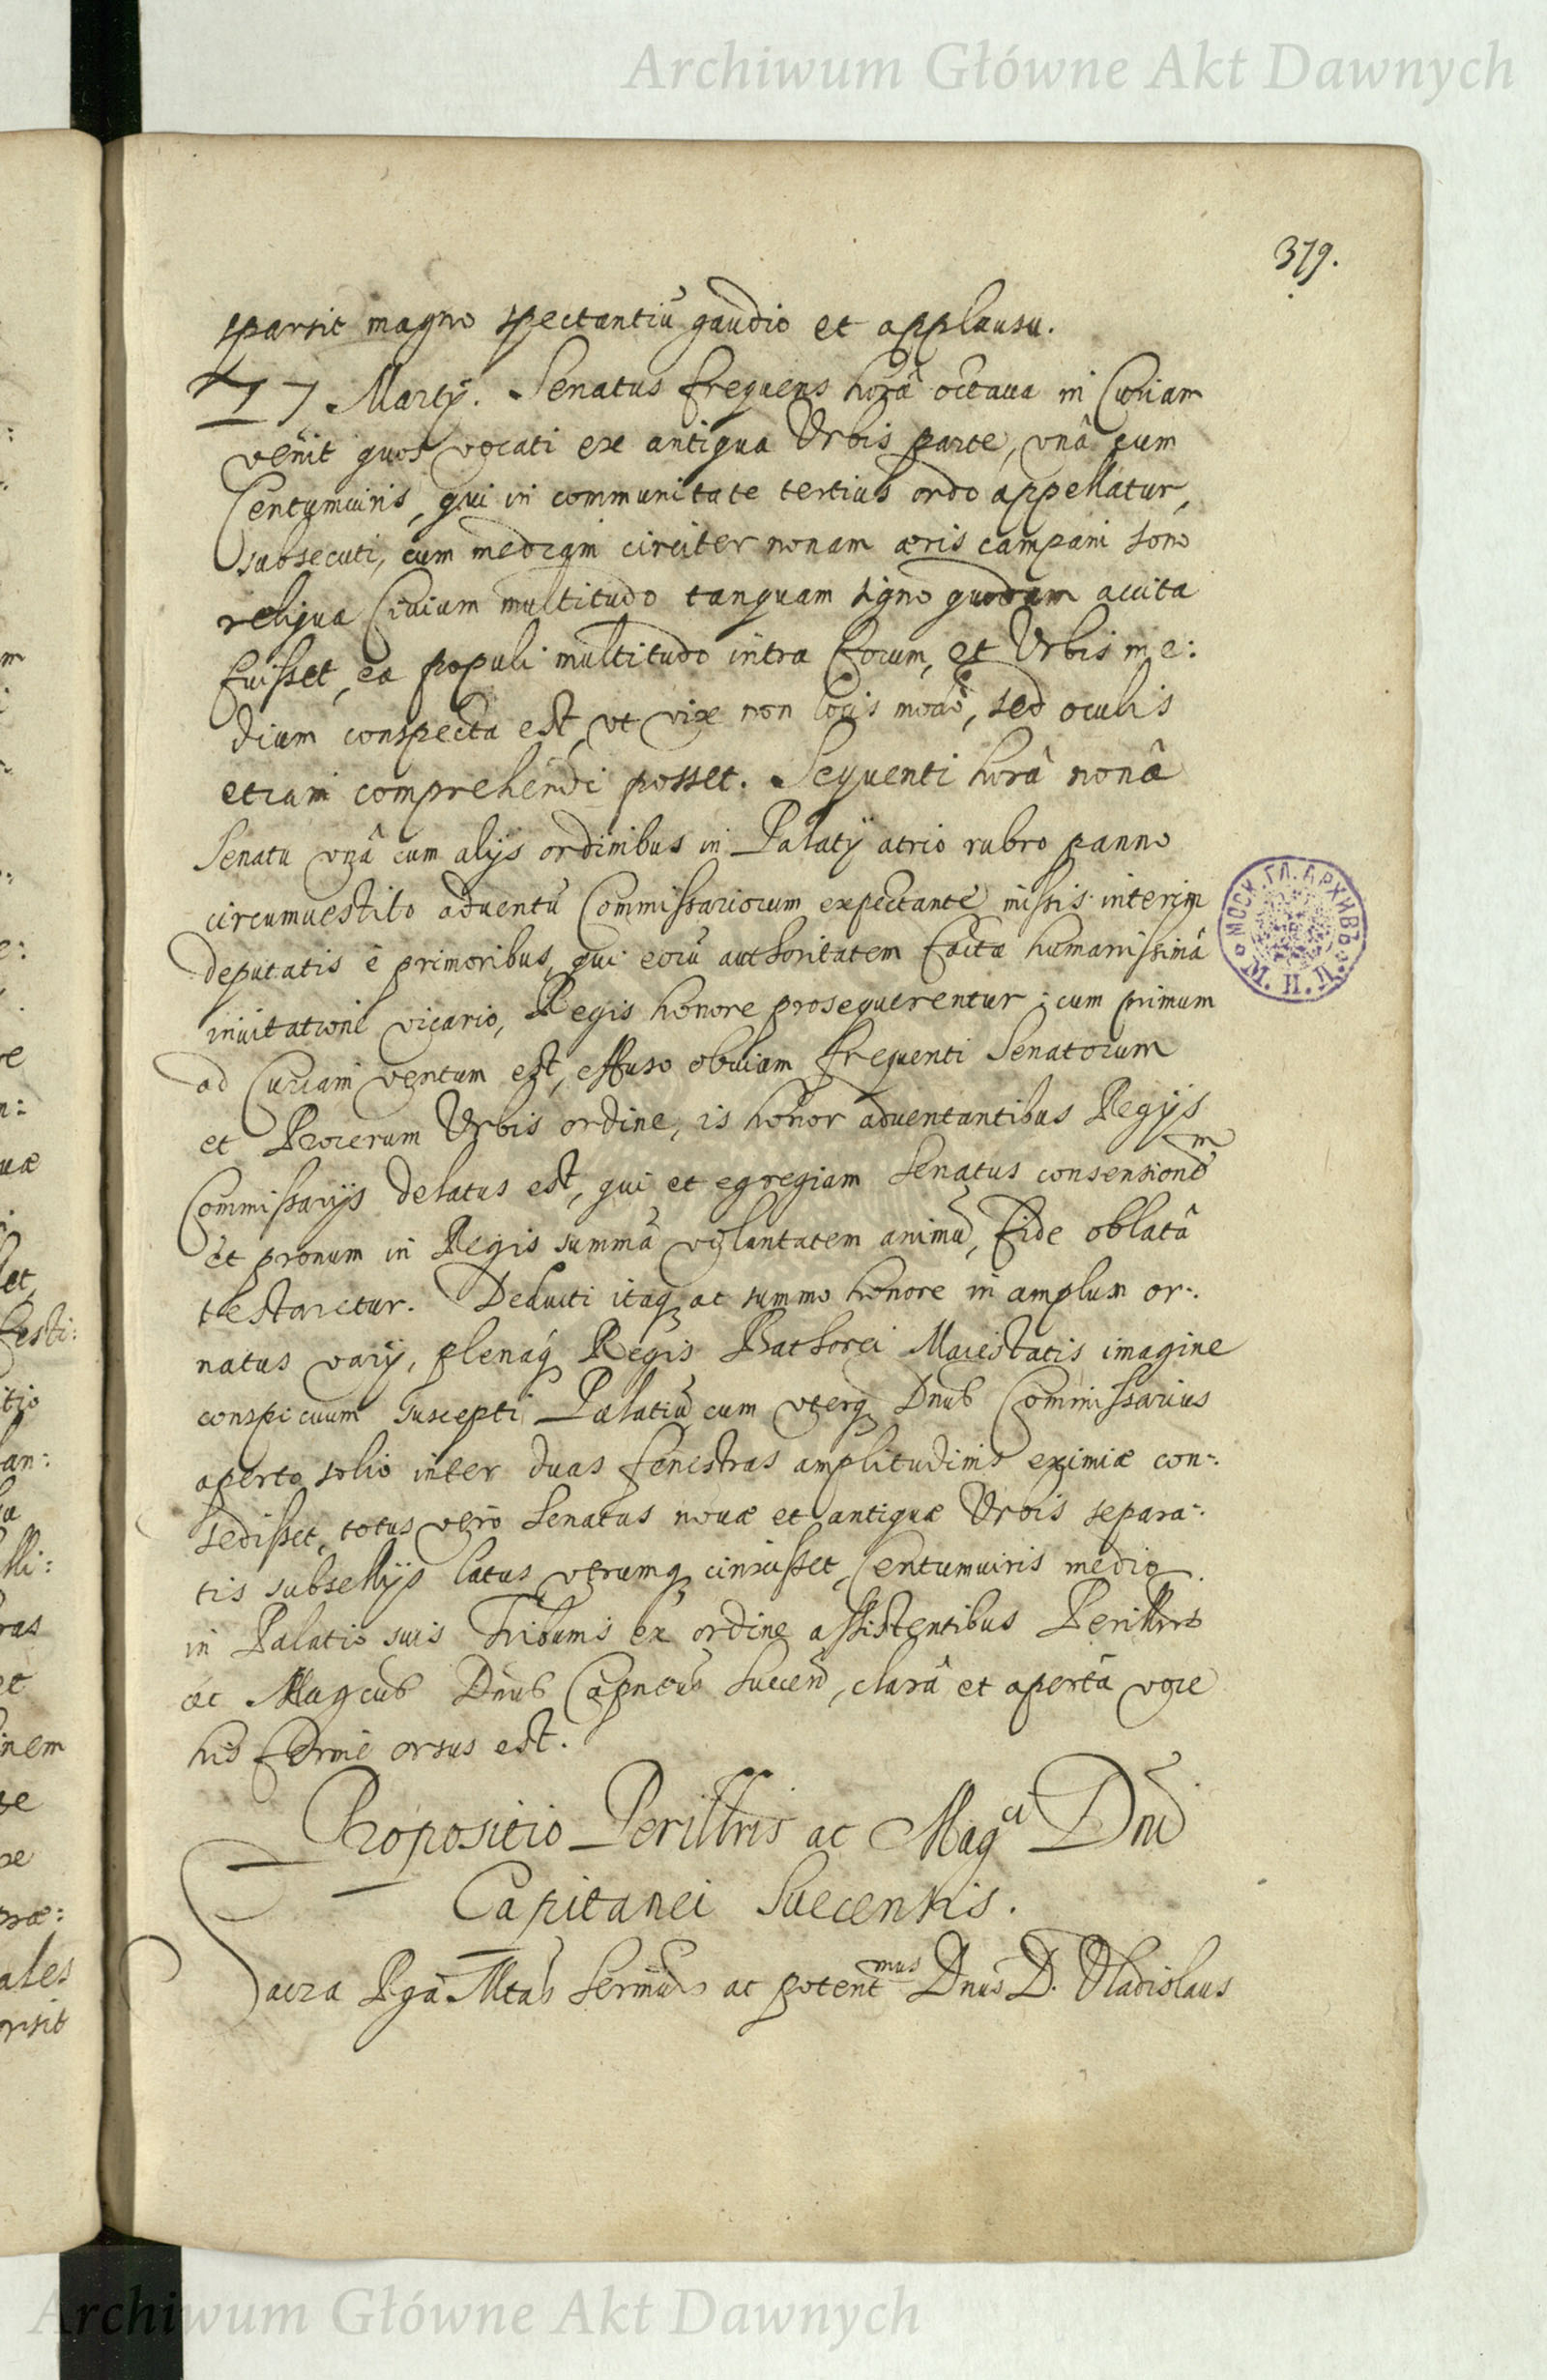 Archiwum Główne Akt Dawnych
379.
sparsit magno spectantiũ gaudio et applausu.
17 Martij. Senatus frequens horâ octaua in Curiam
venit quos vocati ex antiqua Vrbis parte, vnâ cum
Centumuiris, qui in communitate tertius ordo appellatur,
subsecuti, cum mediam circiter nonam æris campani sono
reliqua Ciuium multitudo tanquam signo quodam accita
fuisset, ea populi multitudo intra forum, et Vrbis me:
dium conspecta est, vt vix non locis modò, sed oculis
etiam comprehendi posset. Sequenti horâ nonâ
Senatu vnâ cum alijs ordinibus in Palatij atrio rubro panno
circumuestito aduentũ Commissariorum expectante missis interim
deputatis è primoribus, qui eorũ authoritatem facta humanissimâ
inuitatione vicario, Regis honore prosequerentur; cum primum
ad Curiam ventum est, effuso obuiam frequenti Senatorum
et Procerum Vrbis ordine, is honor aduentantibus Regijs
Commissarijs delatus est, qui et egregiam Senatus consensionem
et pronum in Regis summã voluntatem animũ, fide oblatâ
testaretur. Deducti itaq ac summo honore in amplum or:
natus varij, plenaq Regis Bathorei Maiestatis imagine
conspicuum suscepti Palatiũ cum vterq Dnus Commissarius
aperto solio inter duas fenestras amplitudinis eximiæ con:
sedisset, totus verò Senatus nouæ et antiquæ Vrbis separa:
tis subsellijs latus vtrumq cinxisset, Centumuiris medio
in Palatio suis Tribunis ex ordine assistentibus Perillris
ac Magcus Dnus Capneus Suecen, clarâ et apertâ voce
his fermè orsus est.
Propositio Perillris ac Magci Dni
Capitanei Suecensis.
Sacra Rga Mtas Sermus ac potentmus Dnus D. Vladislaus
МОСК. ГЛ. АРХИВЪ
М. И. Д.
Archiwum Główne Akt Dawnych